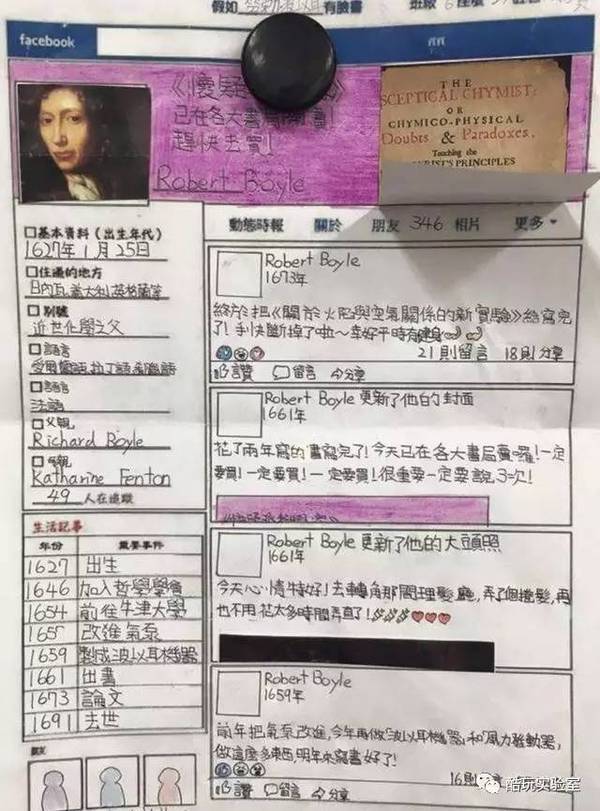 假如 勞動波以耳 有臉書
facebook
已在各大書局開賣!
趕快去買!
Robert Boyle
THE
SCEPTICAL CHYMIST:
OR
CHYMICO-PHYSICAL
Doubts & Paradoxes,
Touching the
動態時報 關於 朋友 346 相片 更多
基本資料(出生年代)
1627年1月25日
住過的地方
日內瓦 義大利 英格蘭等
別號
近世化學之父
語言
愛爾蘭語 拉丁語 希臘語
語言
法語
父親
Richard Boyle
母親
Katharine Fenton
49 人在追蹤
生活記事
年份 重要事件
1627 出生
1646 加入哲學學會
1654 前往牛津大學
改進氣泵
1659 製成波以耳機器
1661 出書
1673 論文
1691 去世
朋友
Robert Boyle
1673年
終於把《關於火焰與空氣關係的新實驗》給寫完
了!手快斷掉了啦~幸好平時有健身
21則留言 18則分享
讚 留言 分享
Robert Boyle 更新了他的封面
1661年
花了兩年寫的書寫完了!今天已在各大書局賣囉!一定
要買!一定要買!一定要買!很重要一定要說3次!
Robert Boyle 更新了他的大頭照
1661年
今天心情特好!去轉角那間理髮廳,弄了個捲髮,再
也不用花太多時間弄直了!
Robert Boyle
1659年
前年把氣泵改進,今年再做「波以耳機器」和「風力發動器」,
做這麼多東西,明年來寫書好了!
16則
讚 留言 分享
酷玩实验室